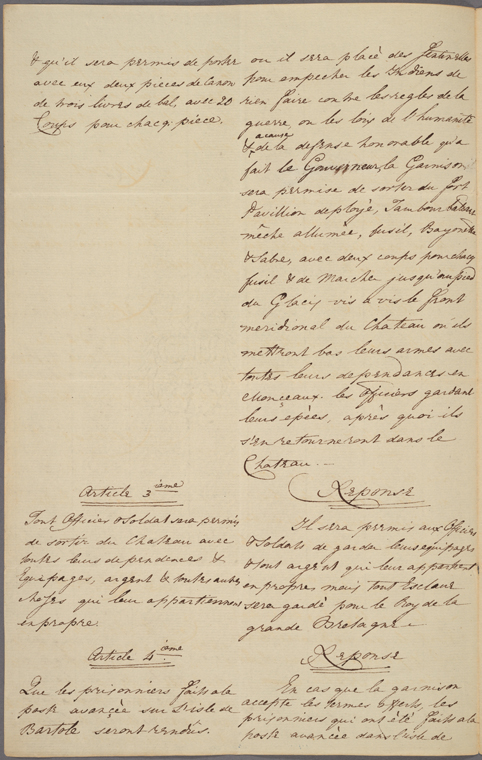 & qu'il sera permis de porter
avec eux deux pieces de Canon
de trois livres de bal, avec 20
Coups pour chacq: piece.
Article 3 ieme
Tout Officier & Soldat sera permis
de sortir du Chateau avec
toutes leurs dependences &
Equipages, argent & toutes autres
choses qui leur appartiennent
en propre.
Article 4 ieme
Que les prisonniers faits a la
poste avancée sur l'isle de
Bartole seront rendus.
ou il sera placé des Sentinelles
pour empecher les Indiens de
rien faire contre les regles de la
guerre ou les lois de l'humanité
a cause
& de la defense honorable qu'a
fait le Gouverneur, la Garnison
sera permise de sortir du fort
Pavillion deployé, Tambour batant
mêche allumée, fusil, Bayonette
& Sabre, avec deux coups pour chacq
fusil & de Marcher jusqu'au pied
du Glacis vis a vis le front
meridional du Chateau où ils
mettront bas leurs armes avec
toutes leurs dependances en
Monceaux. les Officiers gardant
leurs epées, après quoi ils
s'en retourneront dans le
Chateau.
Reponse
Il sera permis aux Officiers
& Soldats de garder leurs equipages
& tout argent qui leur appartient
en propre, mais tout Esclave
sera gardé pour le Roy de la
grande Bretagne.
Reponse
En cas que la garnison
accepte les termes offerts, les
prisonniers qui ont été faits a la
poste avancée dans l'isle de